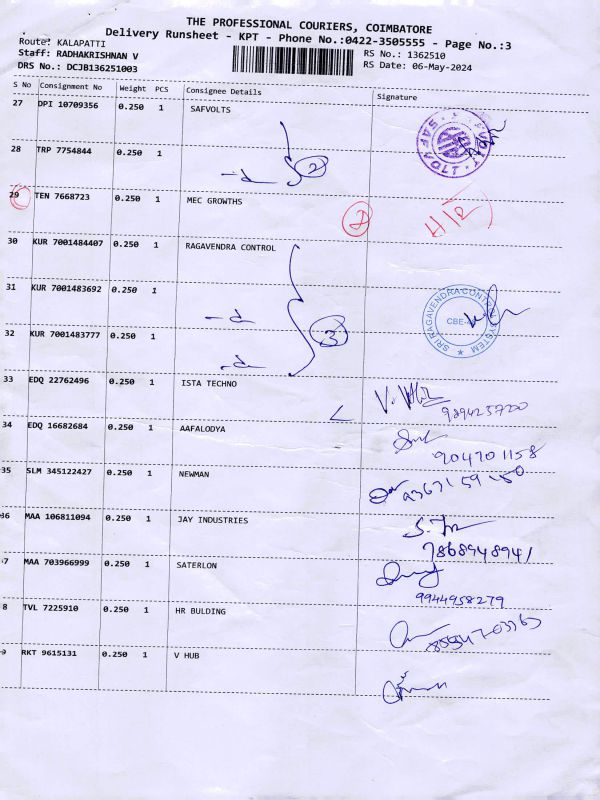 THE PROFESSIONAL COURIERS, COIMBATORE
Delivery Runsheet - KPT - Phone No.:0422-3505555 - Page No.:3
Route: KALAPATTI RS No.: 1362510
Staff: RADHAKRISHNAN V RS Date: 06-May-2024
DRS No.: DCJB136251003
S No Consignment No Weight PCS Consignee Details Signature
27 DPI 10709356 0.250 1 SAFVOLTS
SAFVOLT
28 TRP 7754844 0.250 1
2
29 TEN 7668723 0.250 1 MEC GROWTHS
30 KUR 7001484407 0.250 1 RAGAVENDRA CONTROL
31 KUR 7001483692 0.250 1
SRI RAGAVENDRA CONTROL SYSTEM
CBE-
32 KUR 7001483777 0.250 1
3
33 EDQ 22762496 0.250 1 ISTA TECHNO
34 EDQ 16682684 0.250 1 AAFALODYA
904701158
35 SLM 345122427 0.250 1 NEWMAN
36 MAA 106811094 0.250 1 JAY INDUSTRIES
7868948941
37 MAA 703966999 0.250 1 SATERLON
9944958279
8 TVL 7225910 0.250 1 HR BULDING
9 RKT 9615131 0.250 1 V HUB